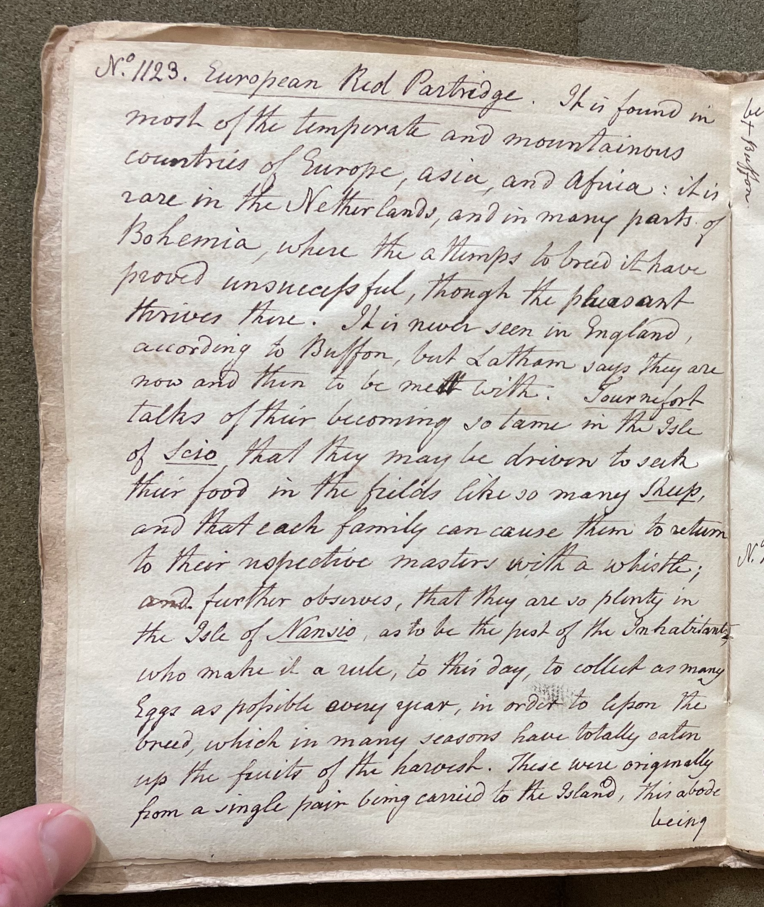 No. 1123. European Red Partridge. It is found in
most of the temperate and mountainous
countries of Europe, asia, and Africa: it is
rare in the Netherlands, and in many parts of
Bohemia, where the attemps to breed it have
proved unsuccessful, though the pheasant
thrives there. It is never seen in England,
according to Buffon, but Latham says they are
now and then to be met with: Tournefort
talks of their becoming so tame in the Isle
of Scio, that they may be driven to seek
their food in the fields like so many Sheep,
and that each family can cause them to return
to their respective masters with a whistle;
and further observes, that they are so plenty in
the Isle of Nansio, as to be the pest of the Inhabitants,
who make it a rule, to this day, to collect as many
Eggs as possible every year, in order to lessen the
breed, which in many seasons have totally eaten
up the fruits of the harvest. These were originally
from a single pair being carried to the Island, this abode
being
Buffon.
No.